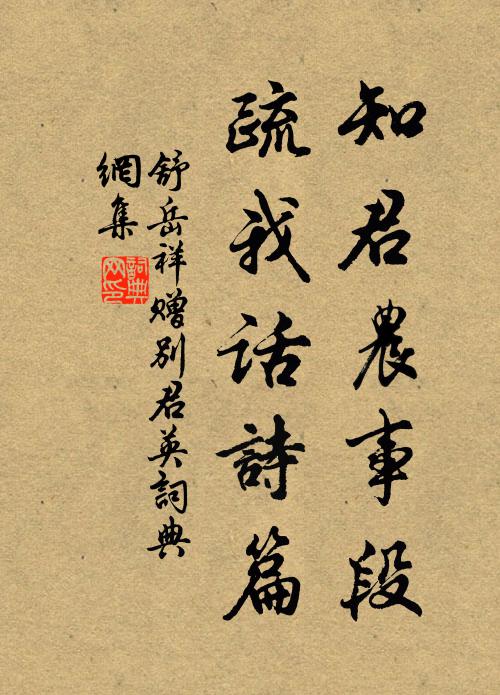 知君農事段
疏我話詩篇
舒岳祥贈別君英詞典
網集
詞典
网印